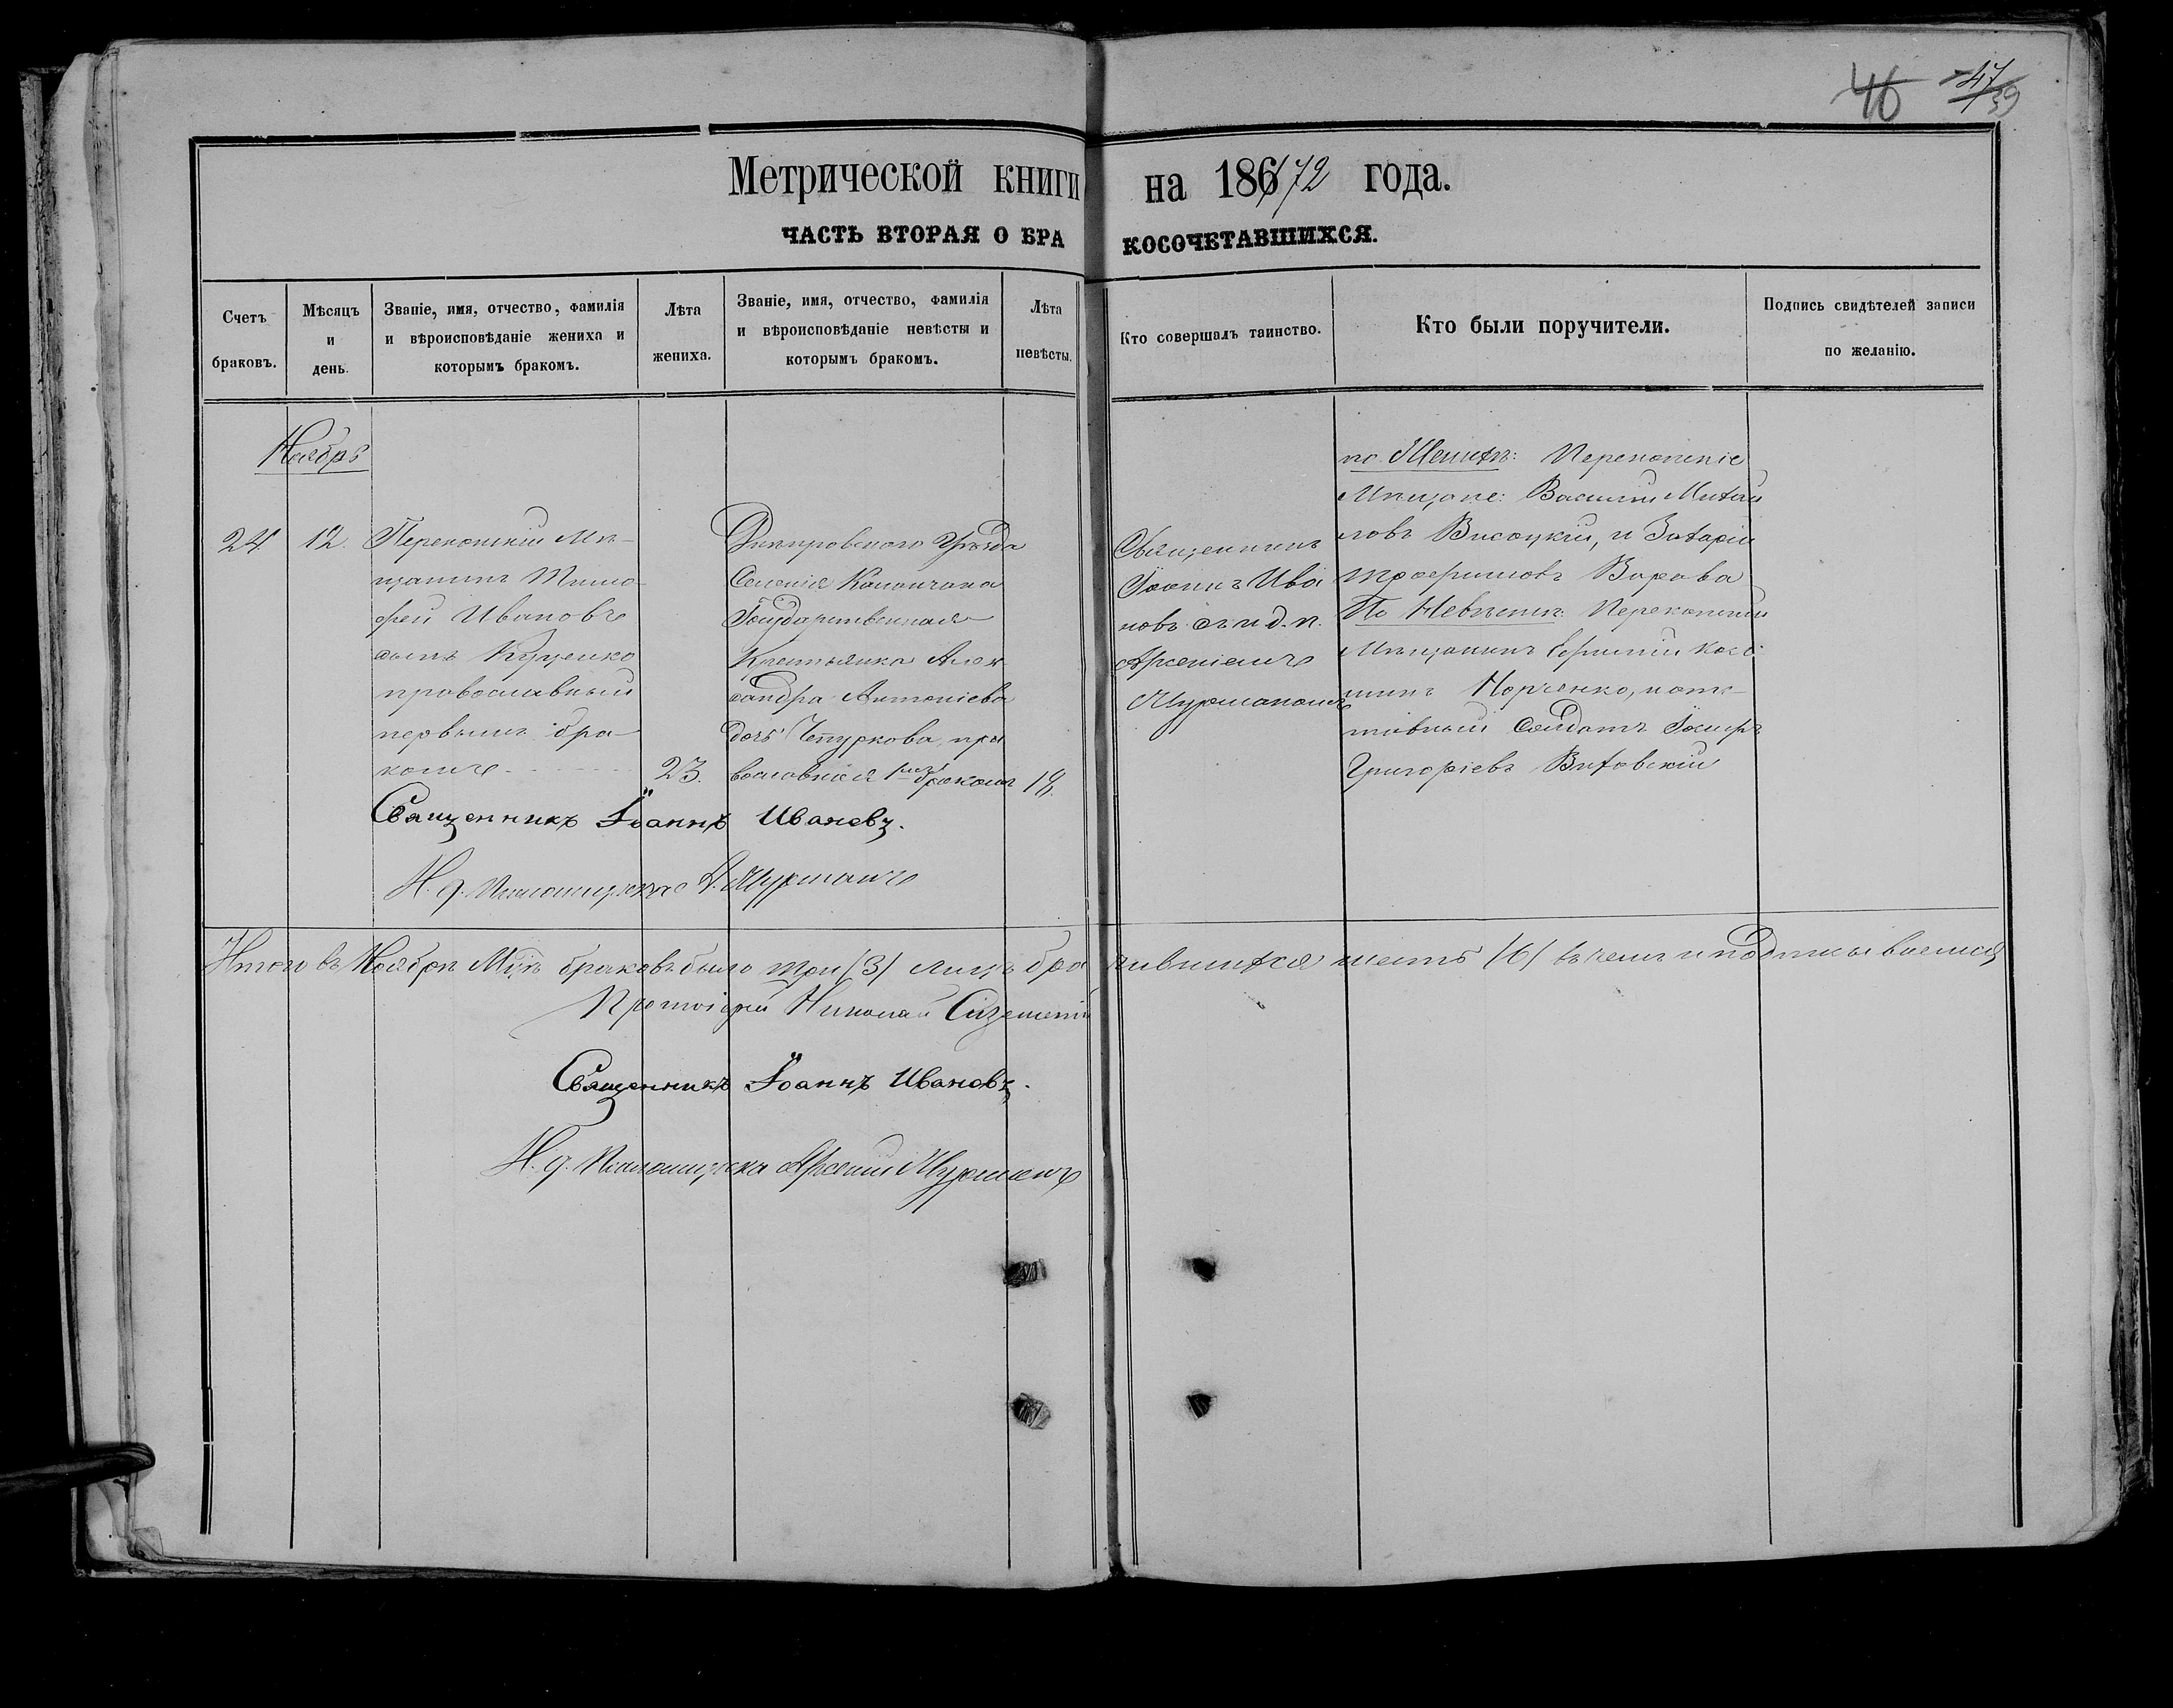 46 47/39
Метрической книги на 186/72 года.
ЧАСТЬ ВТОРАЯ О БРАКОСОЧЕТАВШИХСЯ.
Счетъ браковъ.
Мѣсяцъ и день.
Званіе, имя, отчество, фамилія и вѣроисповѣданіе жениха и которымъ бракомъ.
Лѣта жениха.
Званіе, имя, отчество, фамилія и вѣроисповѣданіе невѣсты и которымъ бракомъ.
Лѣта невѣсты.
Кто совершалъ таинство.
Кто были поручители.
Подпись свидѣтелей записи по желанію.
Ноябрь
24
12.
Перекопскій Мѣ-
щанинъ Тимо-
фей Ивановъ
сынъ Куценко
православный
первымъ бра-
комъ
23.
Днѣпровскаго Уѣзда
Селенія Каланчака
Государственная
Крестьянка Алек
сандра Антоніева
дочь Чепуркова, пра
вославная 1мъ бракомъ
18.
Священникъ
Іоаннъ Ива
новъ съ и. д. п.
Арсеніемъ
Мурманомъ
по Женихѣ: Перекопскіе
Мѣщане: Василій Михай
ловъ Висоцкій, и Захарій
Трофимовъ Варава
По Невѣстѣ: Перекопскій
Мѣщанинъ
Норченко,
Солдатъ Іосифъ
Григоріевъ Витовскій
Священникъ Іоаннъ Ивановъ.
И. д. Псаломщика А. Мурманъ
Итого въ Ноябрѣ Мцѣ браковъ было три (3) лицъ бра чившихся шесть (6) въ чемъ и подписываемся
Протоіерей Николай
Священникъ Іоаннъ Ивановъ.
И. д. Псаломщика Арсеній Мурманъ